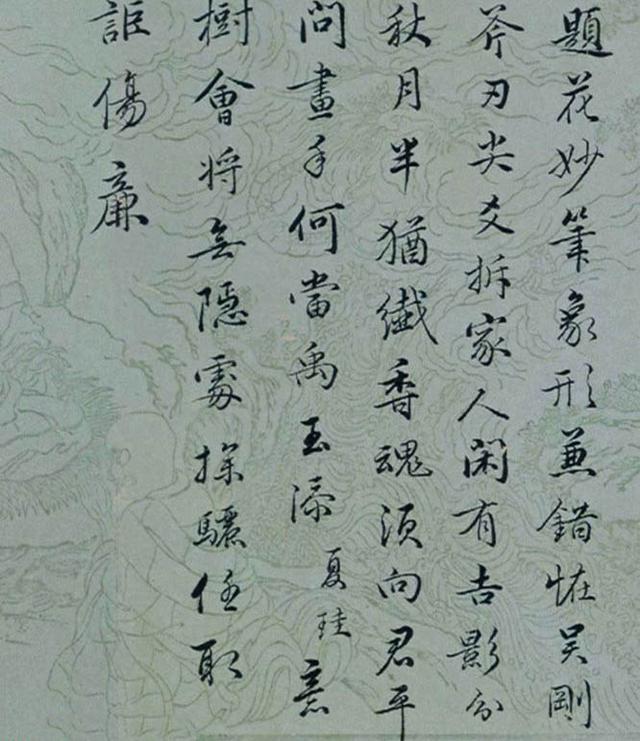 題花妙筆象形兼錯怪吴剛
斧刃尖爻拆家人闲有吉影分
秋月半猶纖香魂須向君平
問畫手何當禹玉添夏珪意
樹會将無隐處探驪任取
詎傷廉